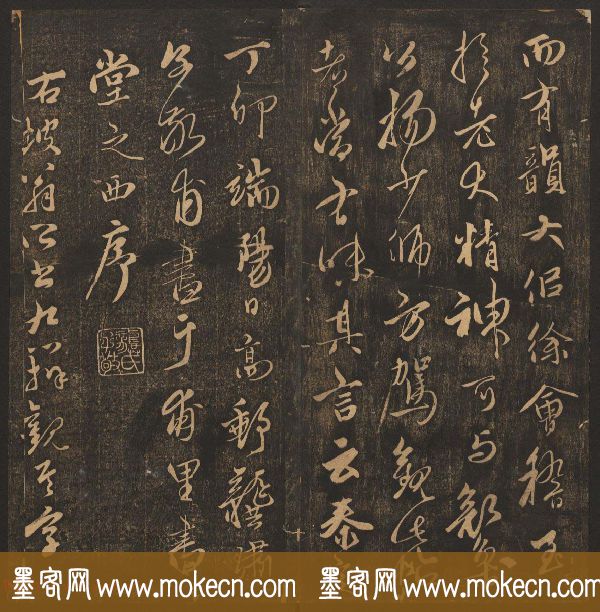 而有韻大侶徐會稽至
於老大精神可与顏魯
公楊少師方駕觀此能
者當有味其言云泰
丁卯端陽日高郵龔璛
子敬甫書于甫里書
堂之西序
龔氏子敬
右坡翁九觀其字
墨客网 www.mokecn.com 墨客网 www.mokecn.com